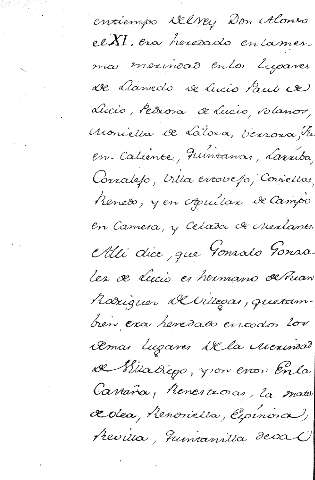 entiempo Del Rey Don Alonso
el XI. era heredado enlames
ma merindad enlos Lugares
De Llanedo de Lucio Paul de
Lucio, Pedrosa de Lucio, solanos,
Moniella de Latora, Terrora,
en Caliente, Quintanas, Larriba,
Corralejo, Villa escovejo, Coniellas,
Renedo, y en Aguilar de Campo
en Camesa, y Celada de
Alli dice, que Gonzalo Gonza
lez de Lucio es hermano de Ruan
Rodriguez De Villegas, quetam-
bien era heredado entodos los
demas lugares De la Merindad
de Villa Diego, y son estos En la
Castaña, Renestrosas, la mata
de olea, Renoniella, Espinosa,
Revilla, Quintanilla